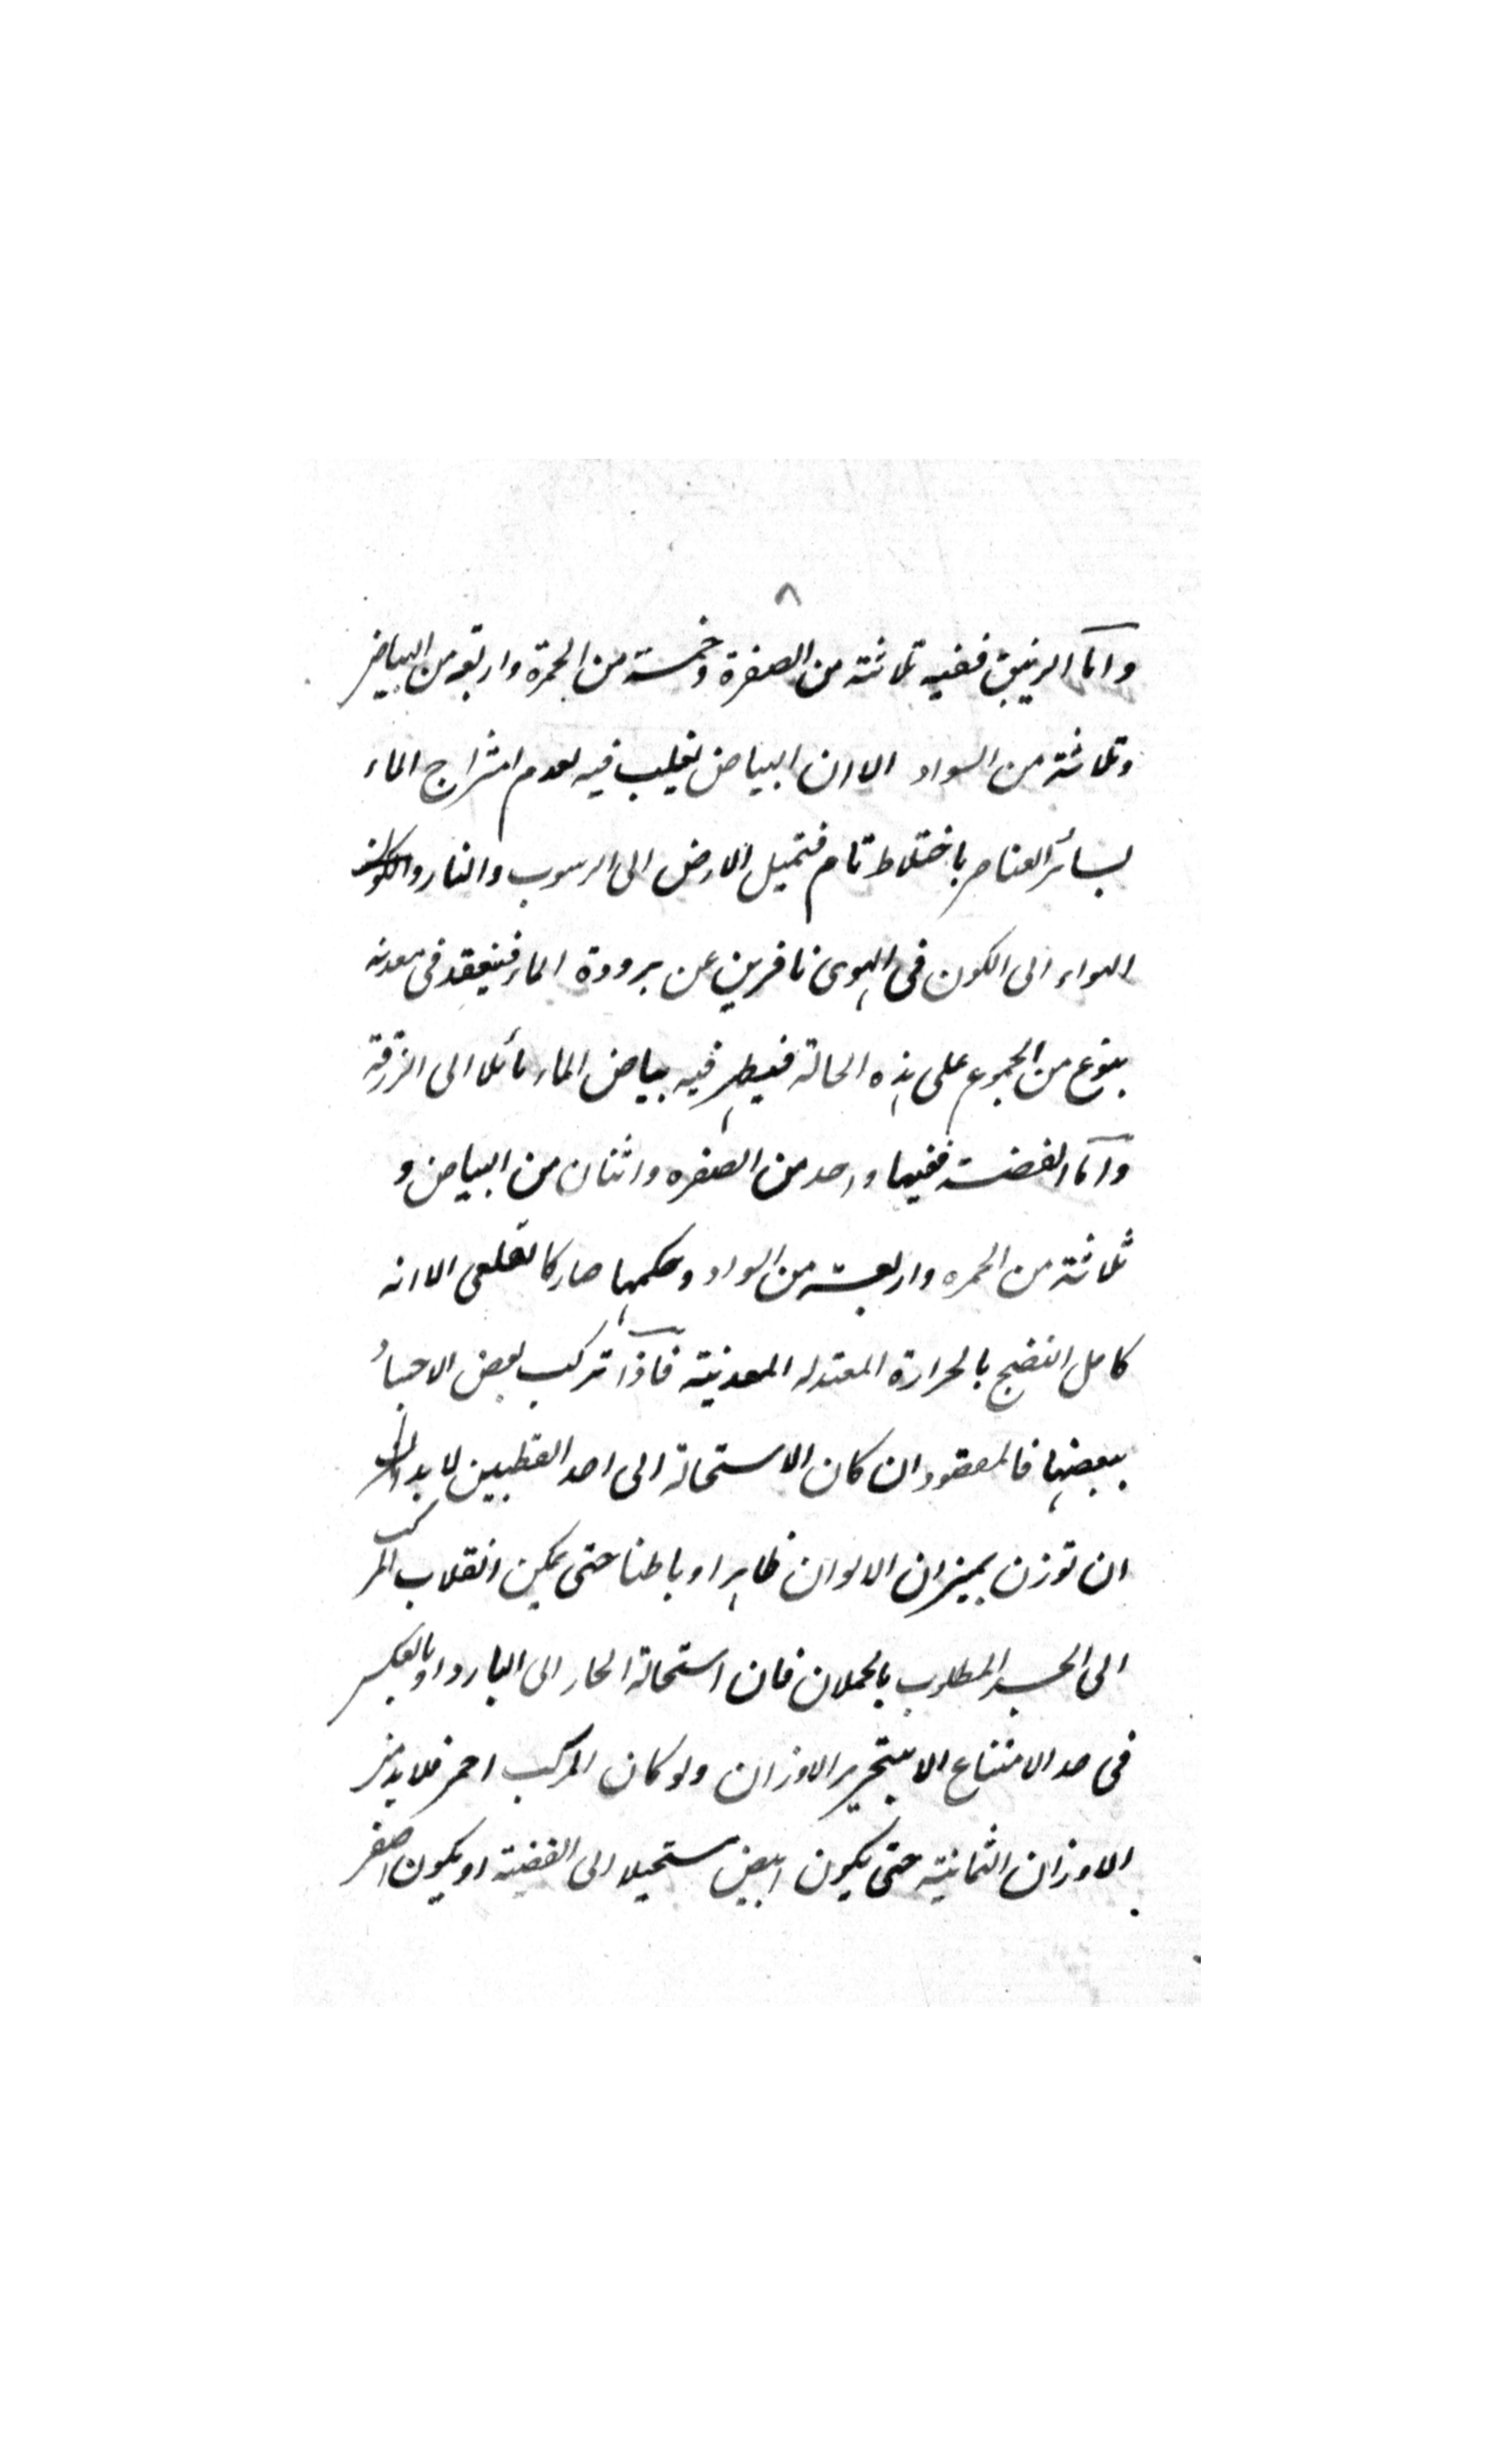 ٨
واما الزيبق ففيه ثلاثة من الصفرة وخمسة من الحمرة واربعة من البياض
وثلاثة من السواد الا ان البياض يغلب فيه لعدم امتزاج الماء
بسائر العناصر باختلاط تام فتميل الارض الى الرسوب والنار و
الهواء الى الكون فى الهوى نافرين عن برودة الماء فينعقد فى معدنه
بنوع من الجموع على هذه الحالة فيظهر فيه بياض الماء مائلا الى الزرقة
واما الفضة ففيها واحد من الصفره واثنان من البياض و
ثلاثة من الحمره واربعة من السواد وحكمها صار كالقلعى الا انه
كامل النضج بالحرارة المعتدله المعدنية فاذا تركب بعض الاجساد
ببعضها فالمعقود ان كان الاستحالة الى احد القطبين لا بد
ان توزن بميزان الالوان ظاهرا وباطنا حتى يمكن انقلاب المركب
الى الجسد المطلوب بالحملان فان استحالة الحار الى البارد او بالعكس
فى حد الامتناع الا بتحرير الاوزان ولو كان المركب احمر فلا بد من
الاوزان الثمانية حتى يكون ابيض مستحيلا الى الفضة او يكون اصفر